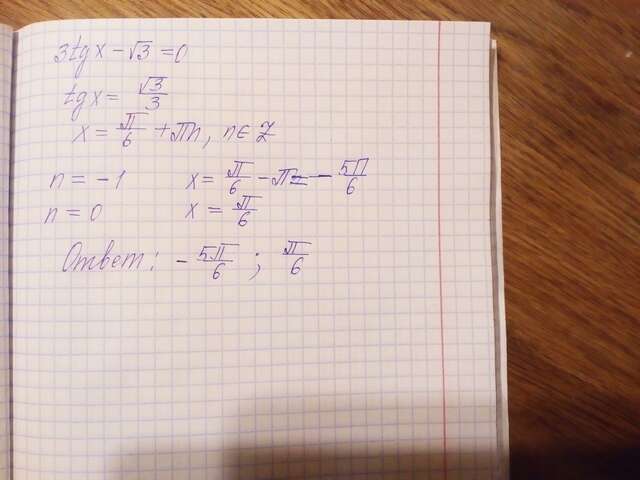 3tgx − √3 = 0
tgx = √3/3
x = π/6 + πn, n ∈ Z
n = −1 x = π/6 − π = − 5π/6
n = 0 x = π/6
Ответ: − 5π/6 ; π/6